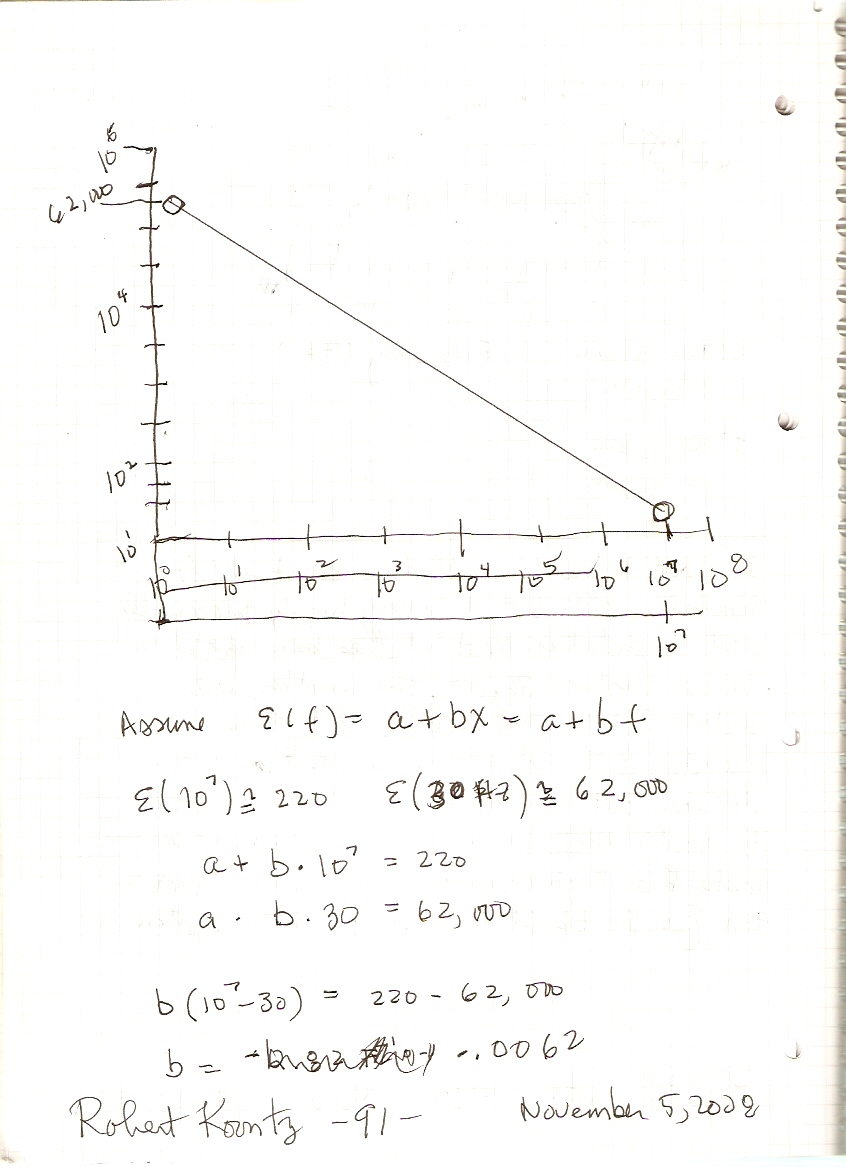 10⁶
62,000
10⁴
10²
10¹
10⁰ 10¹ 10² 10³ 10⁴ 10⁵ 10⁶ 10⁷ 10⁸
10⁷
Assume ε(f) = a + bx = a + bf
ε(10⁷) ≅ 220 ε(30 Hz) ≅ 62,000
a + b · 10⁷ = 220
a · b · 30 = 62,000
b(10⁷ - 30) = 220 - 62,000
b = -.0062
Robert Koontz - 91 - November 5, 2008